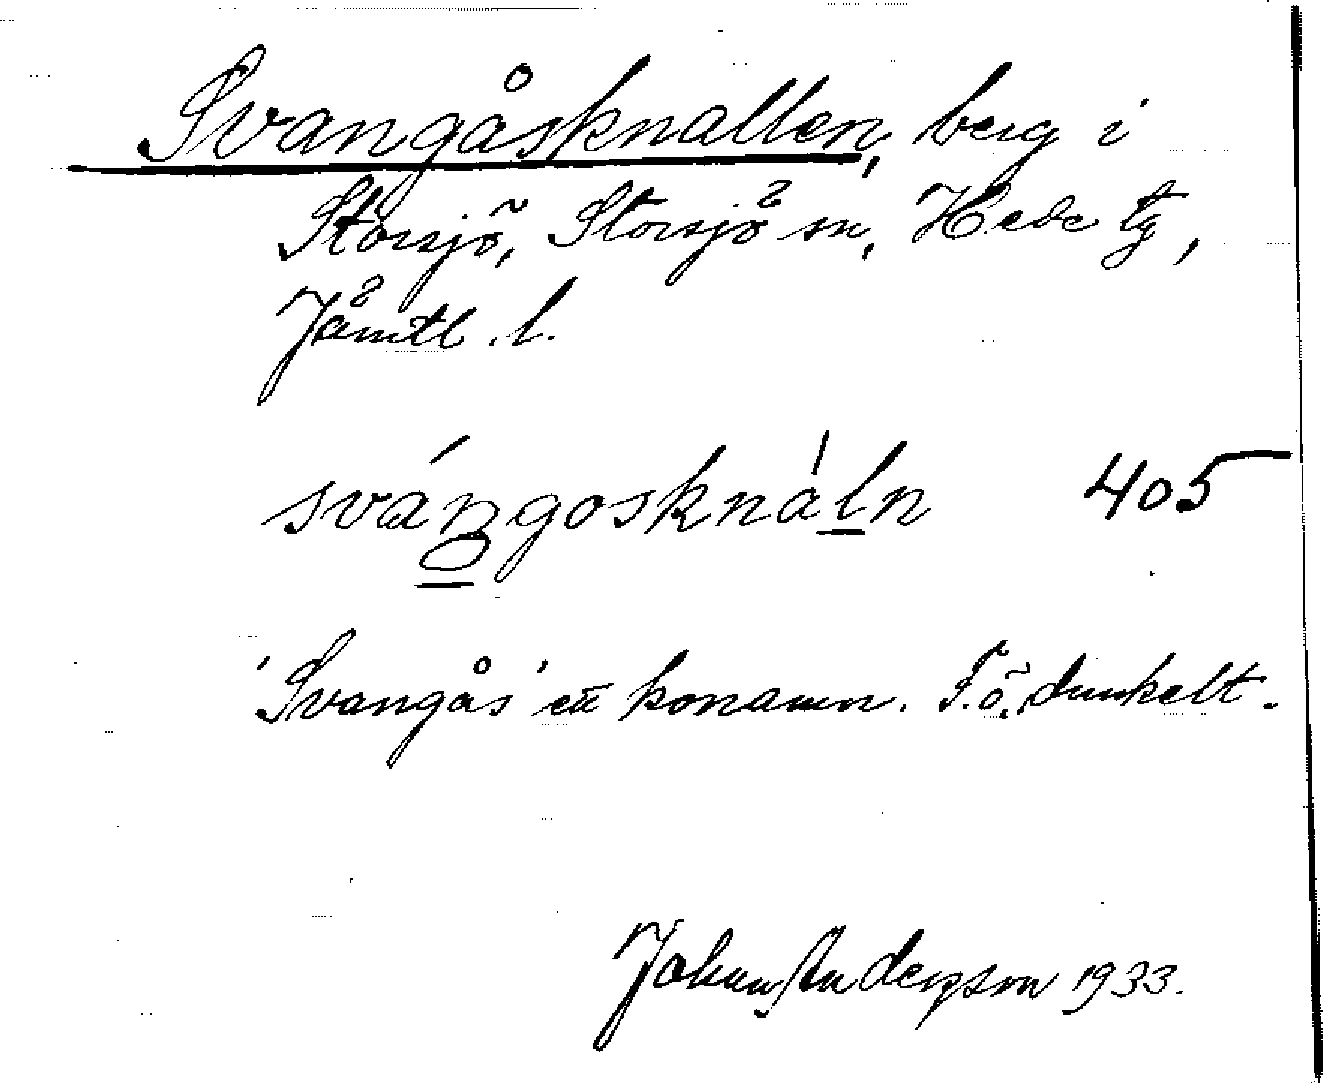 Svangåsknallen, berg i
Storsjö, Storsjö sn, Hede tg,
Jämtl. l.
svángosknáln 405
'Svangås' en konamn. F. ö. dunkelt.
Johan Anderson 1933.